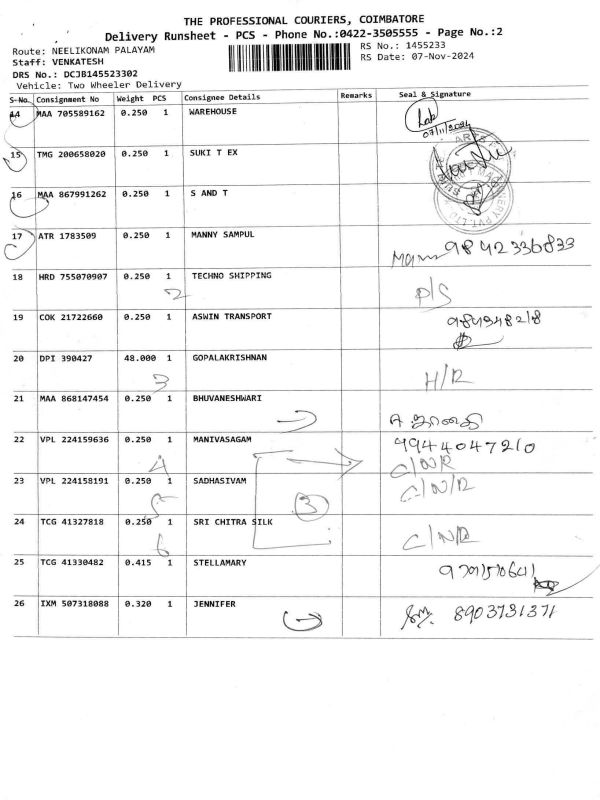 THE PROFESSIONAL COURIERS, COIMBATORE
Delivery Runsheet - PCS - Phone No.:0422-3505555 - Page No.:2
Route: NEELIKONAM PALAYAM RS No.: 1455233
Staff: VENKATESH RS Date: 07-Nov-2024
DRS No.: DCJB145523302
Vehicle: Two Wheeler Delivery
S-No. Consignment No Weight PCS Consignee Details Remarks Seal & Signature
14 MAA 705589162 0.250 1 WAREHOUSE
07/11/2024
15 TMG 200658020 0.250 1 SUKI T EX
16 MAA 867991262 0.250 1 S AND T
17 ATR 1783509 0.250 1 MANNY SAMPUL 9842336833
18 HRD 755070907 0.250 1 TECHNO SHIPPING D/S
2
19 COK 21722660 0.250 1 ASWIN TRANSPORT
20 DPI 390427 48.000 1 GOPALAKRISHNAN H/R
3
21 MAA 868147454 0.250 1 BHUVANESHWARI
22 VPL 224159636 0.250 1 MANIVASAGAM 9944047210
4 C/N/R
23 VPL 224158191 0.250 1 SADHASIVAM C/N/R
5 3
24 TCG 41327818 0.250 1 SRI CHITRA SILK C/N/R
6
25 TCG 41330482 0.415 1 STELLAMARY
26 IXM 507318088 0.320 1 JENNIFER 8903731371